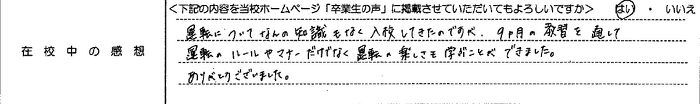 <下記の内容を当校ホームページ「卒業生の声」に掲載させていただいてもよろしいですか> はい ・ いいえ
在校中の感想
運転についてなんの知識もなく入校してきたのですが、9ヶ月の教習を通して
運転のルールやマナーだけでなく運転の楽しさも学ぶことができました。
ありがとうございました。